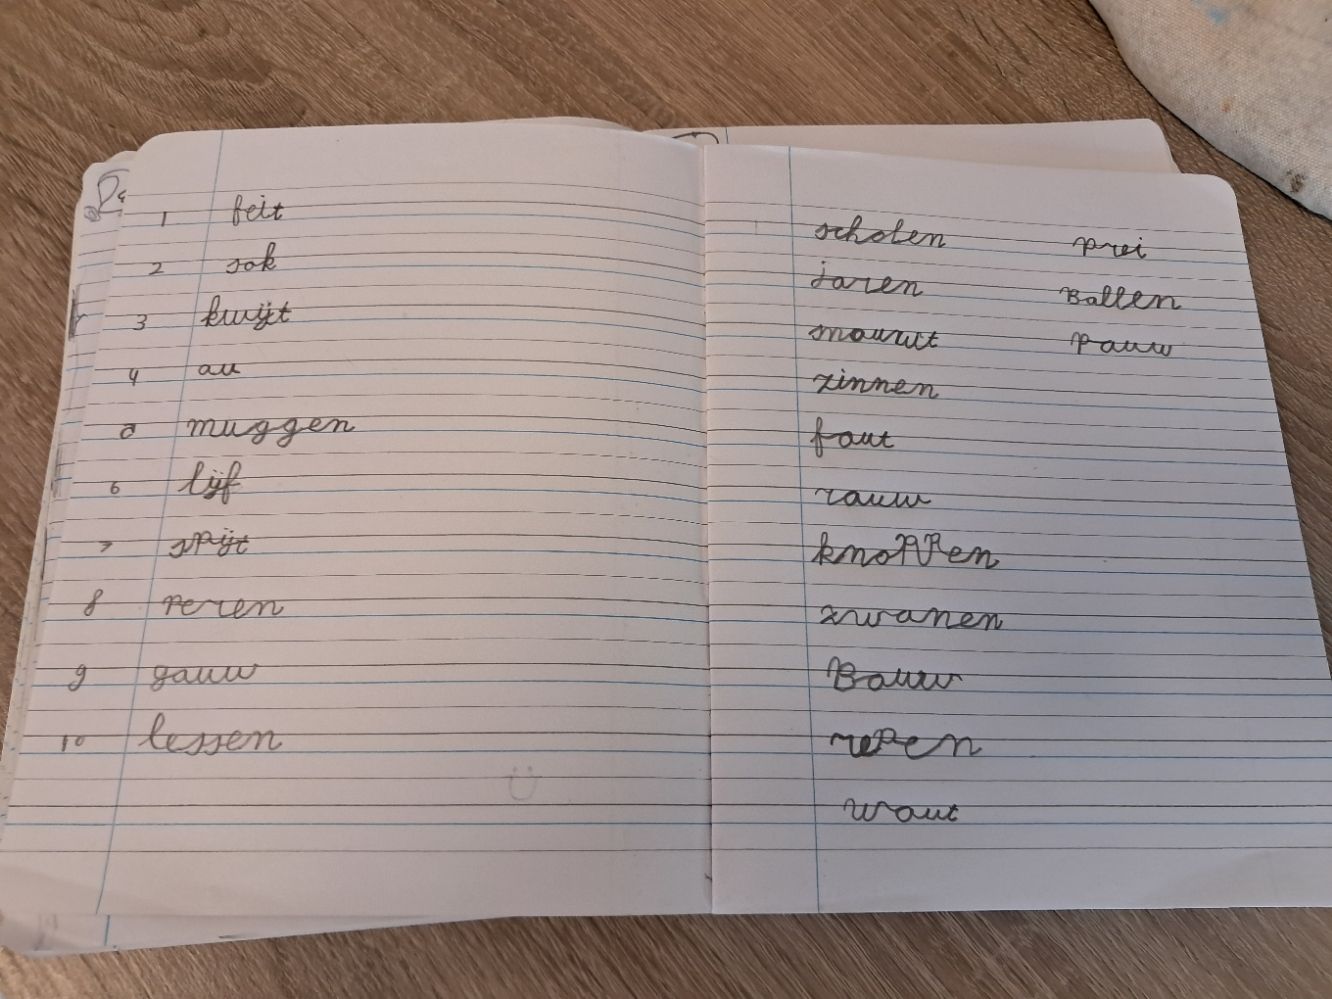 1 feit
2 sok
3 kwijt
4 au
5 muggen
6 lijf
7 spijt
8 peren
9 gauw
10 lessen
scholen prei
jaren Ballen
pauw
zinnen
faut
rauw
knoppen
zwanen
Bauw
repen
waut